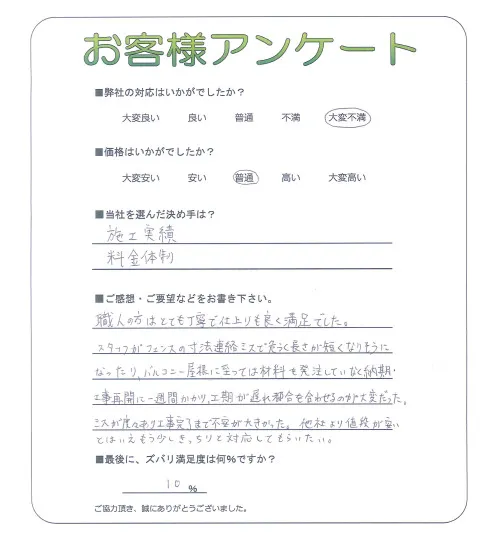 お客様アンケート
■弊社の対応はいかがでしたか？
大変良い 良い 普通 不満 大変不満
■価格はいかがでしたか？
大変安い 安い 普通 高い 大変高い
■当社を選んだ決め手は？
施工実績
料金体制
■ご感想・ご要望などをお書き下さい。
職人の方はとても丁寧で仕上りも良く満足でした。
スタッフがフェンスの寸法連絡ミスで危うく長さが短くなりそうに
なったり、バルコニー屋根に至っては材料も発注していなく納期・
工事再開に一週間かかり、工期が遅れ都合を合わせるのが大変だった。
ミスが度々あり工事完了まで不安が大きかった。他社より値段が安い
とはいえもう少しきっちりと対応してもらいたい。
■最後に、ズバリ満足度は何%ですか？
10 %
ご協力頂き、誠にありがとうございました。